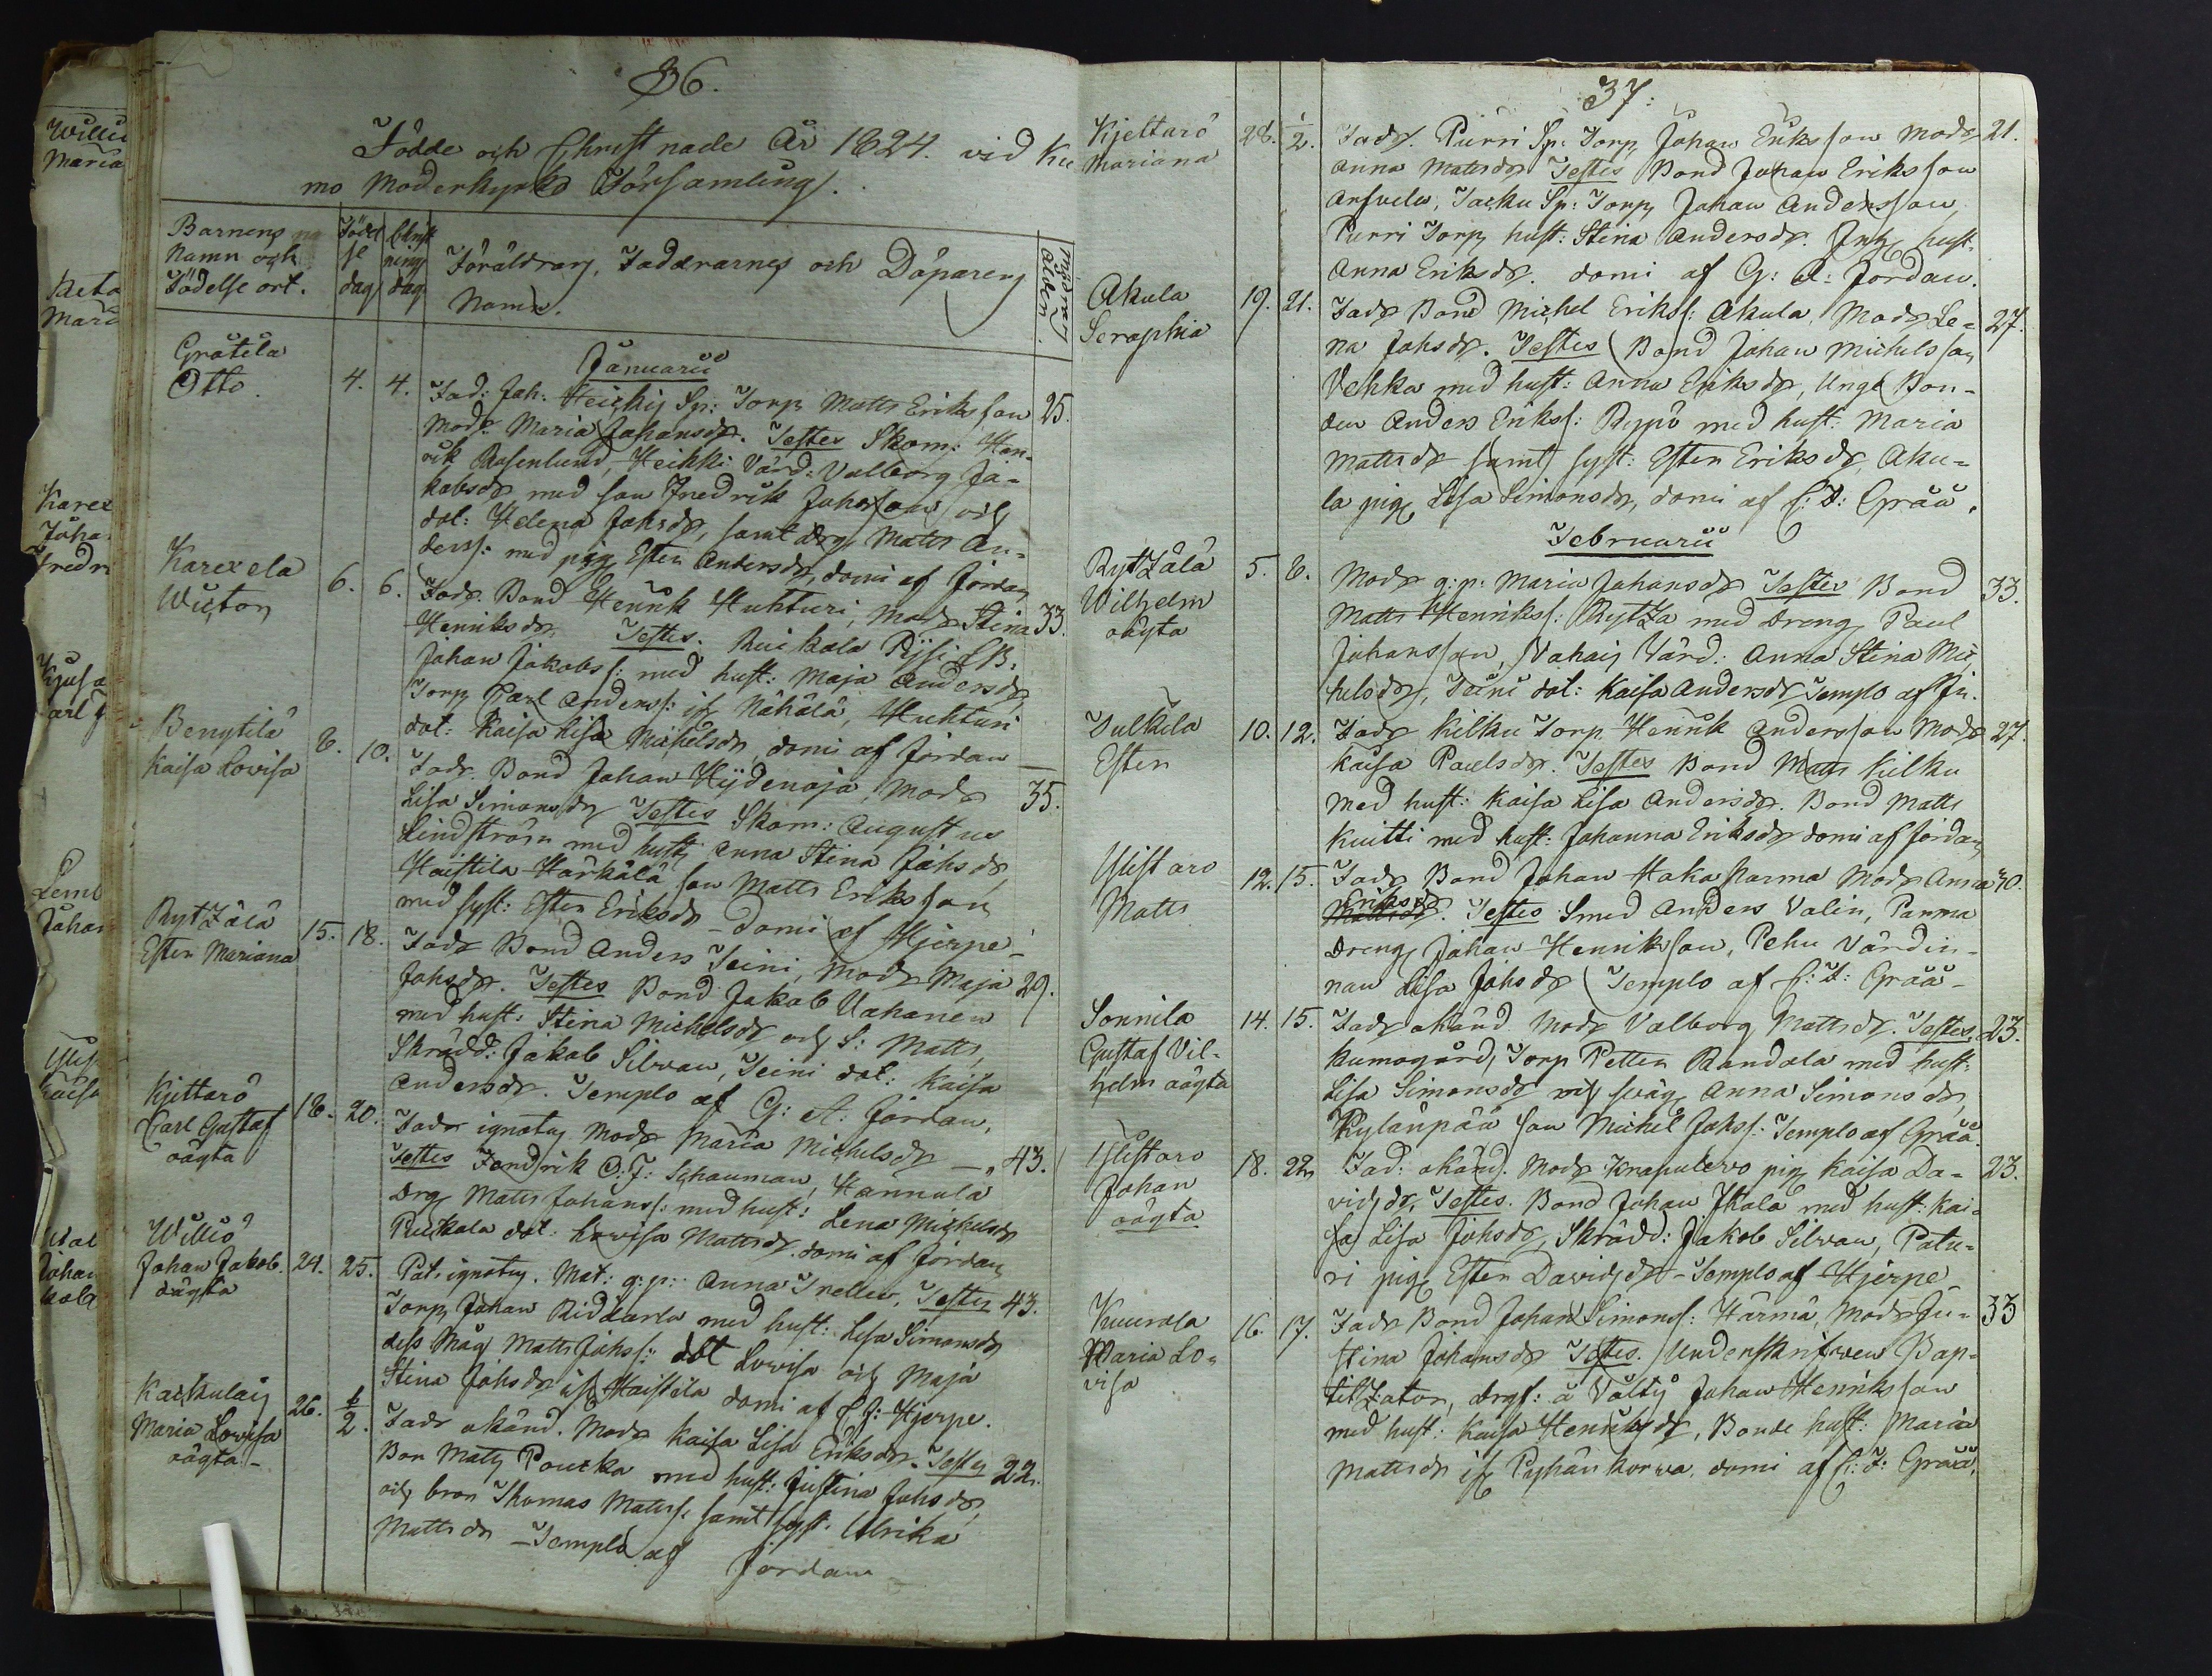 36.
Födde och Christnade År 1824. vid Ku
mo Moderkyrko Församling.
Barnens
Namn och
Födelse ort.
Födel
se
dag
Christ
nings
dag
Föräldrars, Faddrarnes och Döparens
Namn.
Modrens
Ålder.
Januarii
Gråtila
Otto.
4. 4.
Fad: Joh. Heickis Sp: Torp Matts Eriksson 25.
Modr Maria Johansdr. Testes Skom: Hen-
rik Rosenlund, Heikki Värd: Valborg Ja-
kobsdr med son Fredrik Johansson och
dot: Helena Johsdr, samt drg Matts An-
derss: med pig Ester Andersdr, domi af Jordan
Karexela
Wictor
6. 6.
Fadr. Bond Henrik Huhturi, Modr Stina 33.
Henriksdr. Testes. Ruickala Rysi LB:
Johan Jakobss: med hust: Maja Andersdr,
Torp Karl Anderss: if Nähälä, Huhturi
dot: Kaisa Lisa Michelsdr, domi af Jordan
Benytilä
Kaisa Lovisa
8. 10.
Fadr. Bond Johan Hydenoja, Modr 35.
Lisa Simonsdr Testes Skom: Augustus
Lindström med hust Anna Stina Johsdr,
Haistila Härkälä son Matts Eriksson
med syst: Ester Eriksdr - domi af Hjerpe -
Rytzälä
Ester Mariana
15. 18.
Fadr Bond Anders Teini, Modr Maja 29.
Johsdr. Testes Bond Jakob Uahanen
med hust: Stina Michelsdr och S: Matts,
Skrädd: Jakob Silvan, Teini dot: Kaisa
Andersdr. Templo af G: A: Jordan.
Kjettarö
Carl Gustaf
oägta
18. 20.
Fadr ignotus Modr Maria Michelsdr 43.
Testes Fendrik O: F: Schauman, Hannula
Drg Matts Johanss: med hust: Lena Michelsdr
Puckala dot: Lovisa Mattsdr. domi af Jordan
Williö
Johan Jakob.
oägta
24. 25.
Patr ignotus. Mat: q: p: Anna Trellu. Testes 43.
Torp Johan Riddarla med hust: Lisa Simonsdr
dess Måg Matts Johss: dot Lovisa och Maja
Stina Johsdr if Haistila domi af C J: Hjerpe.
Kackulais
Maria Lovisa
oägta -
26. 1/2.
Fadr okänd. Modr Kaisa Lisa Eriksdr. Testes 22.
Bon Matts Poucka med hust: Justina Johsdr,
och bron Thomas Matss: samt syst: Ulrika
Mattsdr - Templo af
Jordan
37:
Kjettarö
Mariana
28. 1/2.
Fadr. Purri Sp: Torp Johan Eriksson Modr 21.
Anna Mattsdr Testes Bond Johan Eriksson
Anfvelu, Jacku Sp: Torp Johan Andersson,
Purri Torp hust: Stina Andersdr. Inh hust:
Anna Eriksdr. domi af G: A: Jordan.
Akula
Seraphia
19. 21.
Fadr Bond Michel Erikss: Akula, Modr Le- 27.
na Johsdr. Testes Bond Johan Michelsson
Vehka med hust: Anna Eriksdr, Unge Bon-
den Anders Erikss: Reppo med hust: Maria
Mattsdr samt syst: Ester Eriksdr, Aku-
la pig Lisa Simonsdr, domi af C: F: Grää.
Februarii
Rytzälä
Wilhelm
oägta
5. 8.
Modr q: p: Maria Johansdr Testes Bond 33.
Matts Henrikss: Rytza med dreng Paul
Johansson, Vahais Värd: Anna Stina Mic
helsdr, Teini dot: Kaisa Andersdr Templo af Jn.
Vulkila
Ester
10. 12.
Fadr Kilku Torp Henrik Andersson Modr 27.
Kaisa Paulsdr. Testes Bond Matts Kilku
med hust: Kaisa Lisa Andersdr. Bond Matts
Knitti med hust: Johanna Eriksdr domi af Jordan
Ylistaro
Matts
12. 15.
Fadr Bond Johan Haka Parma Modr Anna 40.
Eriksdr. Testes Smed Anders Valin, Parma
dreng Johan Henriksson, Pehu Värdin-
nan Lisa Johsdr Templo af C: F: Grää -
Sonnila
Gustaf Vil-
helm oägta
14. 15.
Fadr okänd Modr Valborg Mattsdr. Testes 23.
Kumogård, Torp Petter Randala med hust:
Lisa Simonsdr och sväg Anna Simonsdr,
Kylänpää son Michel Johss: Templo af Grää.
Ylistaro
Johan
oägta
18. 22.
Fad: okänd. Modr Krapulevo pig Kaisa Da- 23.
vidsdr, Testes. Bond Johan Ikala med hust: Kai-
sa Lisa Johsdr, Skrädd: Jakob Silvan, Patu-
ri pig Ester Davidsdr - Templo af Hjerpe -
Kuurola
Maria Lo-
visa
16. 17.
Fadr Bond Johan Simonss: Härmä, Modr Ju- 33
stina Johansdr Testes. Underskrifven Bap-
titzator, drgs: å Välty Johan Henriksson
med hust: Kaisa Henriksdr, Bonde hust: Maria
Mattsdr if Pyhänkorva, domi af C: F: Grää.